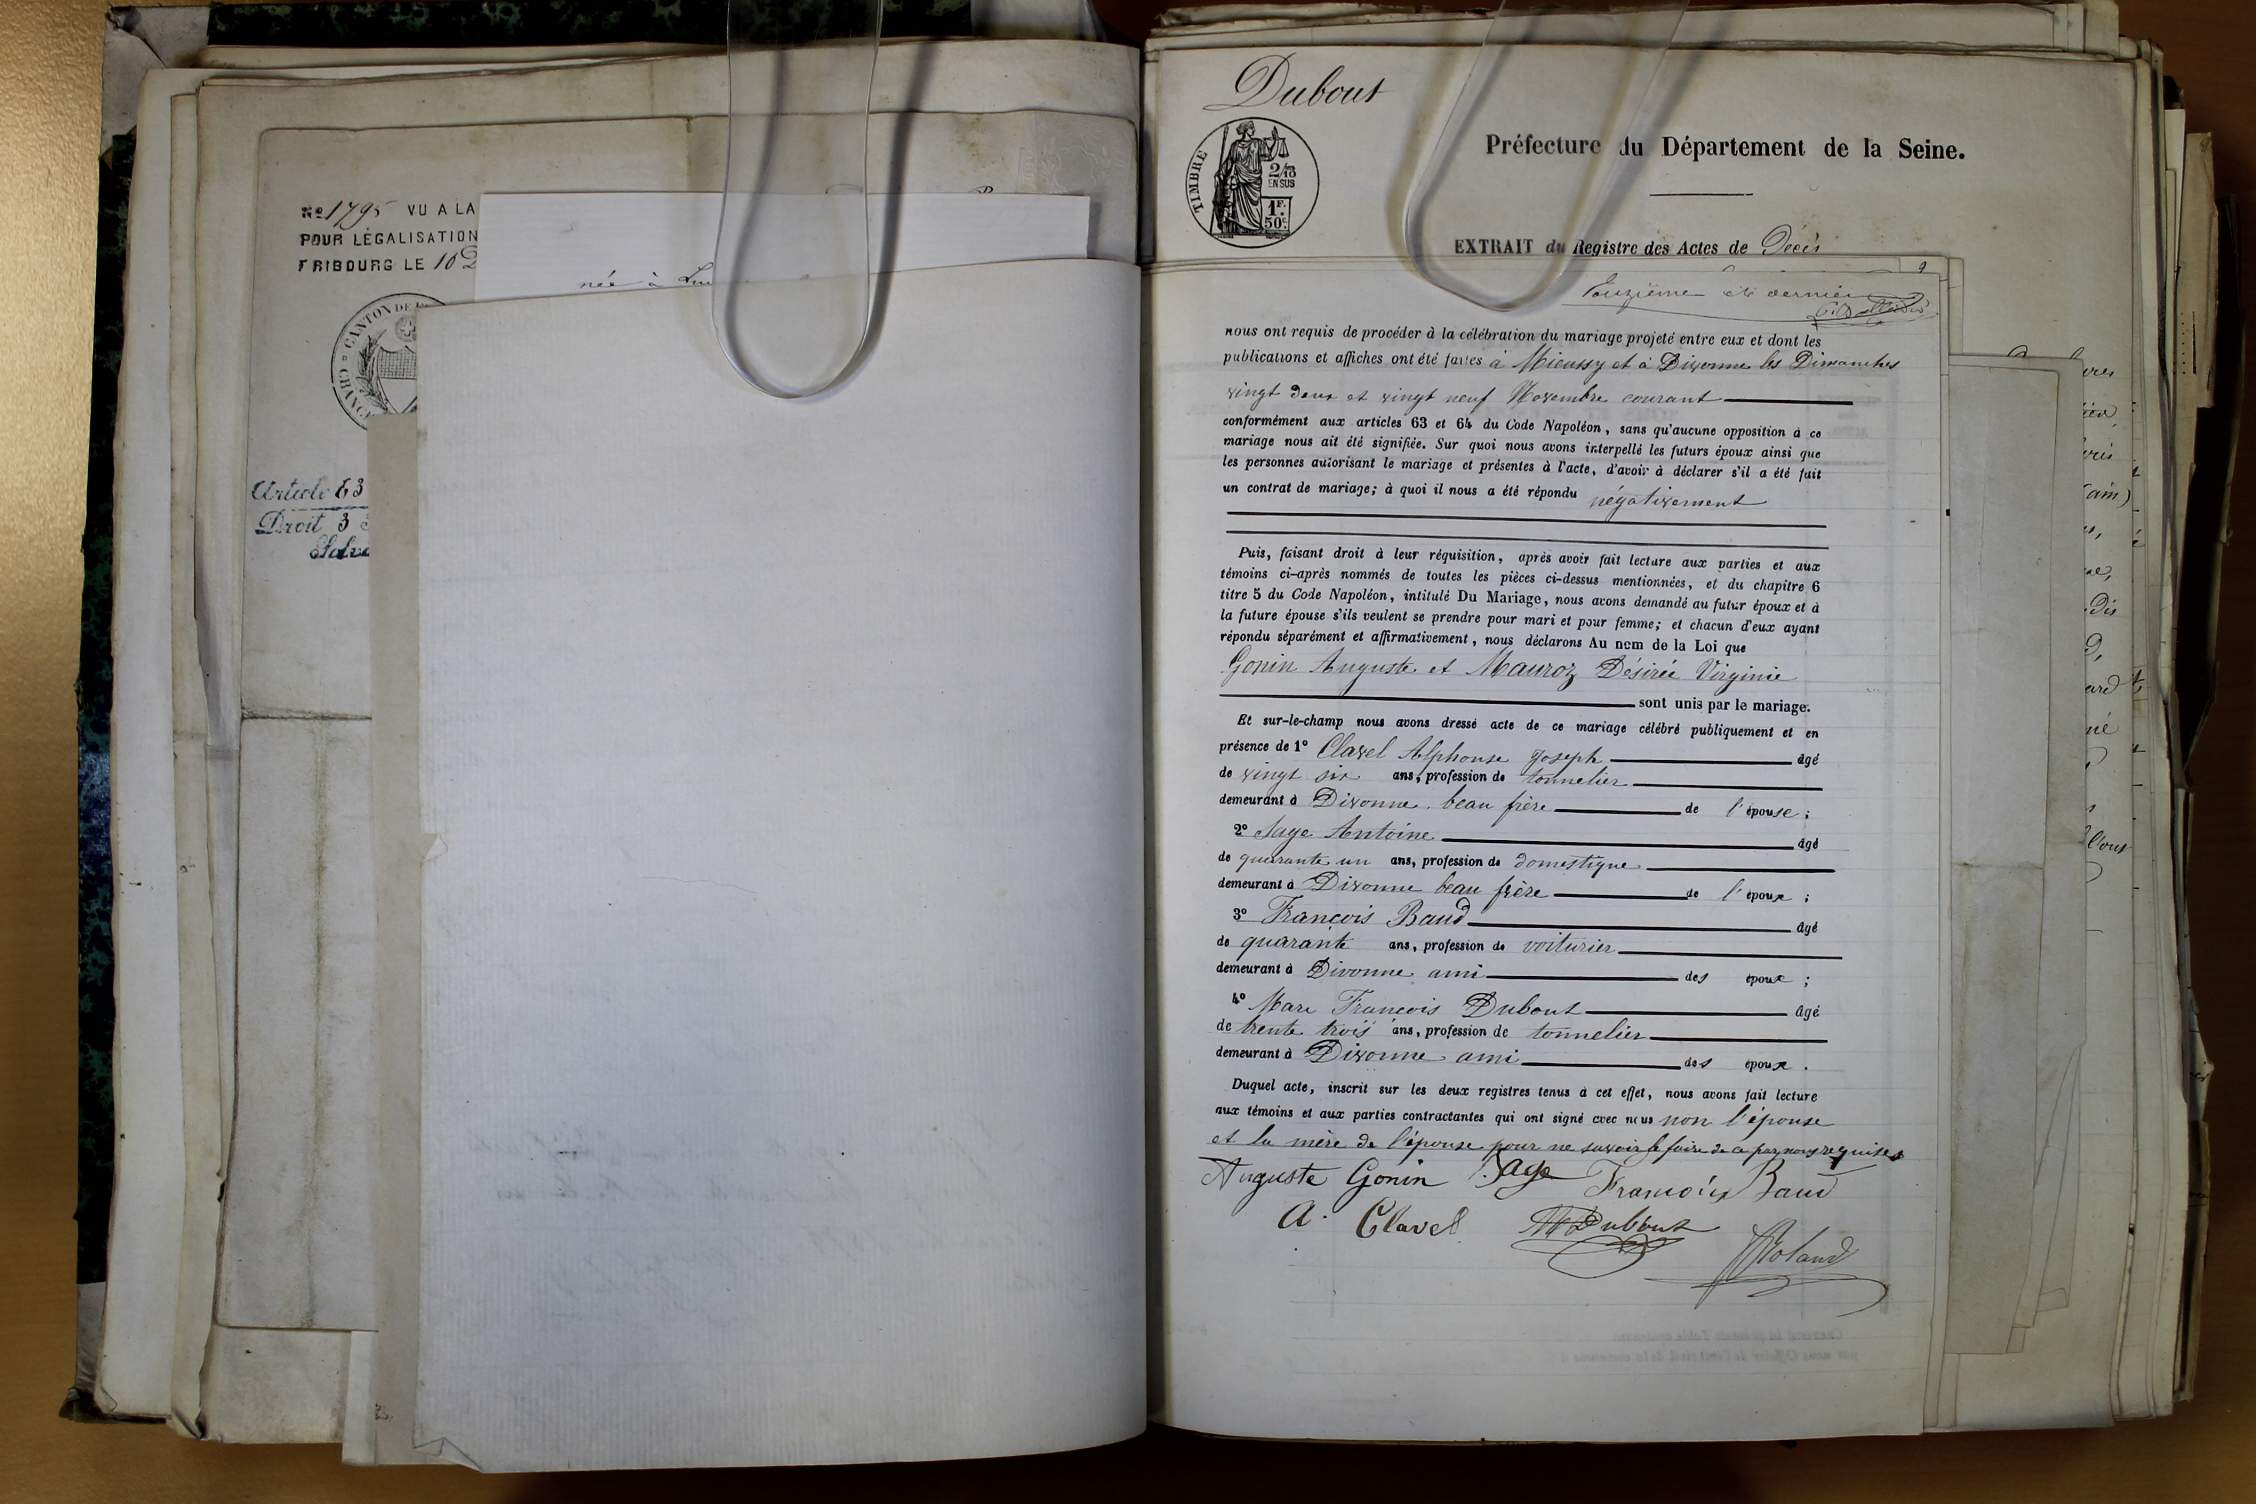 No 1795 VU A LA
POUR LÉGALISATION
FRIBOURG LE 16
née à
CANTON DE
Article 83
Droit 3
Dubout
TIMBRE
2/10
EN SUS
1F.
50c.
Préfecture du Département de la Seine.
EXTRAIT du Registre des Actes de Décès
9
Douzième et dernier
nous ont requis de procéder à la célébration du mariage projeté entre eux et dont les
publications et affiches ont été faites à Mieussy et à Divonne les Dimanches
vingt deux et vingt neuf Novembre courant
conformément aux articles 63 et 64 du Code Napoléon, sans qu'aucune opposition à ce
mariage nous ait été signifiée. Sur quoi nous avons interpellé les futurs époux ainsi que
les personnes autorisant le mariage et présentes à l'acte, d'avoir à déclarer s'il a été fait
un contrat de mariage; à quoi il nous a été répondu négativement
Puis, faisant droit à leur réquisition, après avoir fait lecture aux parties et aux
témoins ci-après nommés de toutes les pièces ci-dessus mentionnées, et du chapitre 6
titre 5 du Code Napoléon, intitulé Du Mariage, nous avons demandé au futur époux et à
la future épouse s'ils veulent se prendre pour mari et pour femme; et chacun d'eux ayant
répondu séparément et affirmativement, nous déclarons Au nom de la Loi que
Gonin Auguste et Mauroz Désirée Virginie
sont unis par le mariage.
Et sur-le-champ nous avons dressé acte de ce mariage célébré publiquement et en
présence de 1° Clavel Alphonse Joseph âgé
de vingt six ans, profession de tonnelier
demeurant à Divonne beau frère de l'épouse;
2° Sage Antoine âgé
de quarante un ans, profession de domestique
demeurant à Divonne beau frère de l'époux;
3° François Baud âgé
de quarante ans, profession de voiturier
demeurant à Divonne ami des époux;
4° Marc François Dubout âgé
de trente trois ans, profession de tonnelier
demeurant à Divonne ami des époux.
Duquel acte, inscrit sur les deux registres tenus à cet effet, nous avons fait lecture
aux témoins et aux parties contractantes qui ont signé avec nous non l'épouse
et la mère de l'épouse pour ne savoir le faire de ce par nous requises
Auguste Gonin Sage François Baud
A. Clavel Dubout
Roland